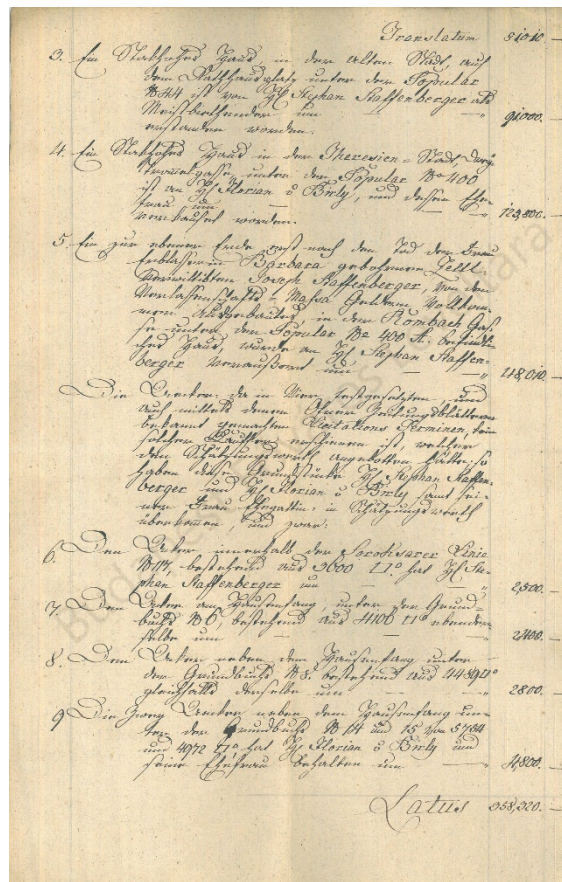 Translatum 81010.
3. Ein Stokhohes Haus, in der Alten Stadt, auf
dem Rathhausplatz unter der Popular
No 44 ist von Hl Stephan Staffenberger als
Meistbiethender um
erstanden worden. 91000.
4. Ein Stokhohes Haus in der Theresien-Stadt,
unter der Popular No 400
ist an Hl Florian v Birly, und dessen Ehe-
frau um
verkauft worden. 123,800.
5. Ein zur ebener Erde erst nach dem Tod der Frau
Erblasserin Barbara gebohrene Zellt
verwittibten Joseph Staffenberger, von den
Verlassenschafts-Massa Geldern vollkom-
men Auferbautes, in der Rombach Gas-
se unter der Popular No 400 A. befindli-
ches Haus, wurde an Hl Stephan Staffen-
berger veraußert um 48,010.
Die Aecker, da in festgesetzten, und
auch mittels denen Ofner Zeitungsblättern
bekannt gemachten Licitations Terminen, kein
solcher Käufer erschienen ist, welcher
den Schätzungswerth angebotten hätte, so
haben diese Grundstücke Hl Stephan Staffen-
berger und Hl Florian v Birly, samt sei-
ner Frau Ehegattin, in Schätzungswerth
übernommen, und zwar:
6. Den Acker innerhalb der Soroksarer Linie
No 117, bestehend aus 3600 □° hat Hl Ste-
phan Staffenberger um 2,500.
7. Den Acker am Hausenfang, unter der Grund-
buchs No 6, bestehend aus 4106 □° ebender-
selbe um 2400.
8. Den Acker neben dem Hausenfang unter
der Grundbuchs No 8. bestehend aus 4489 □°
gleichfalls derselbe um 2800.
9 Die zwey Aecker neben dem Hausenfang un-
ter der Grundbuchs No 14 und 15 von 5784
und 4972 □° hat Hl Florian v Birly und
seine Ehefrau behalten um 4,800.
Latus 358,320.